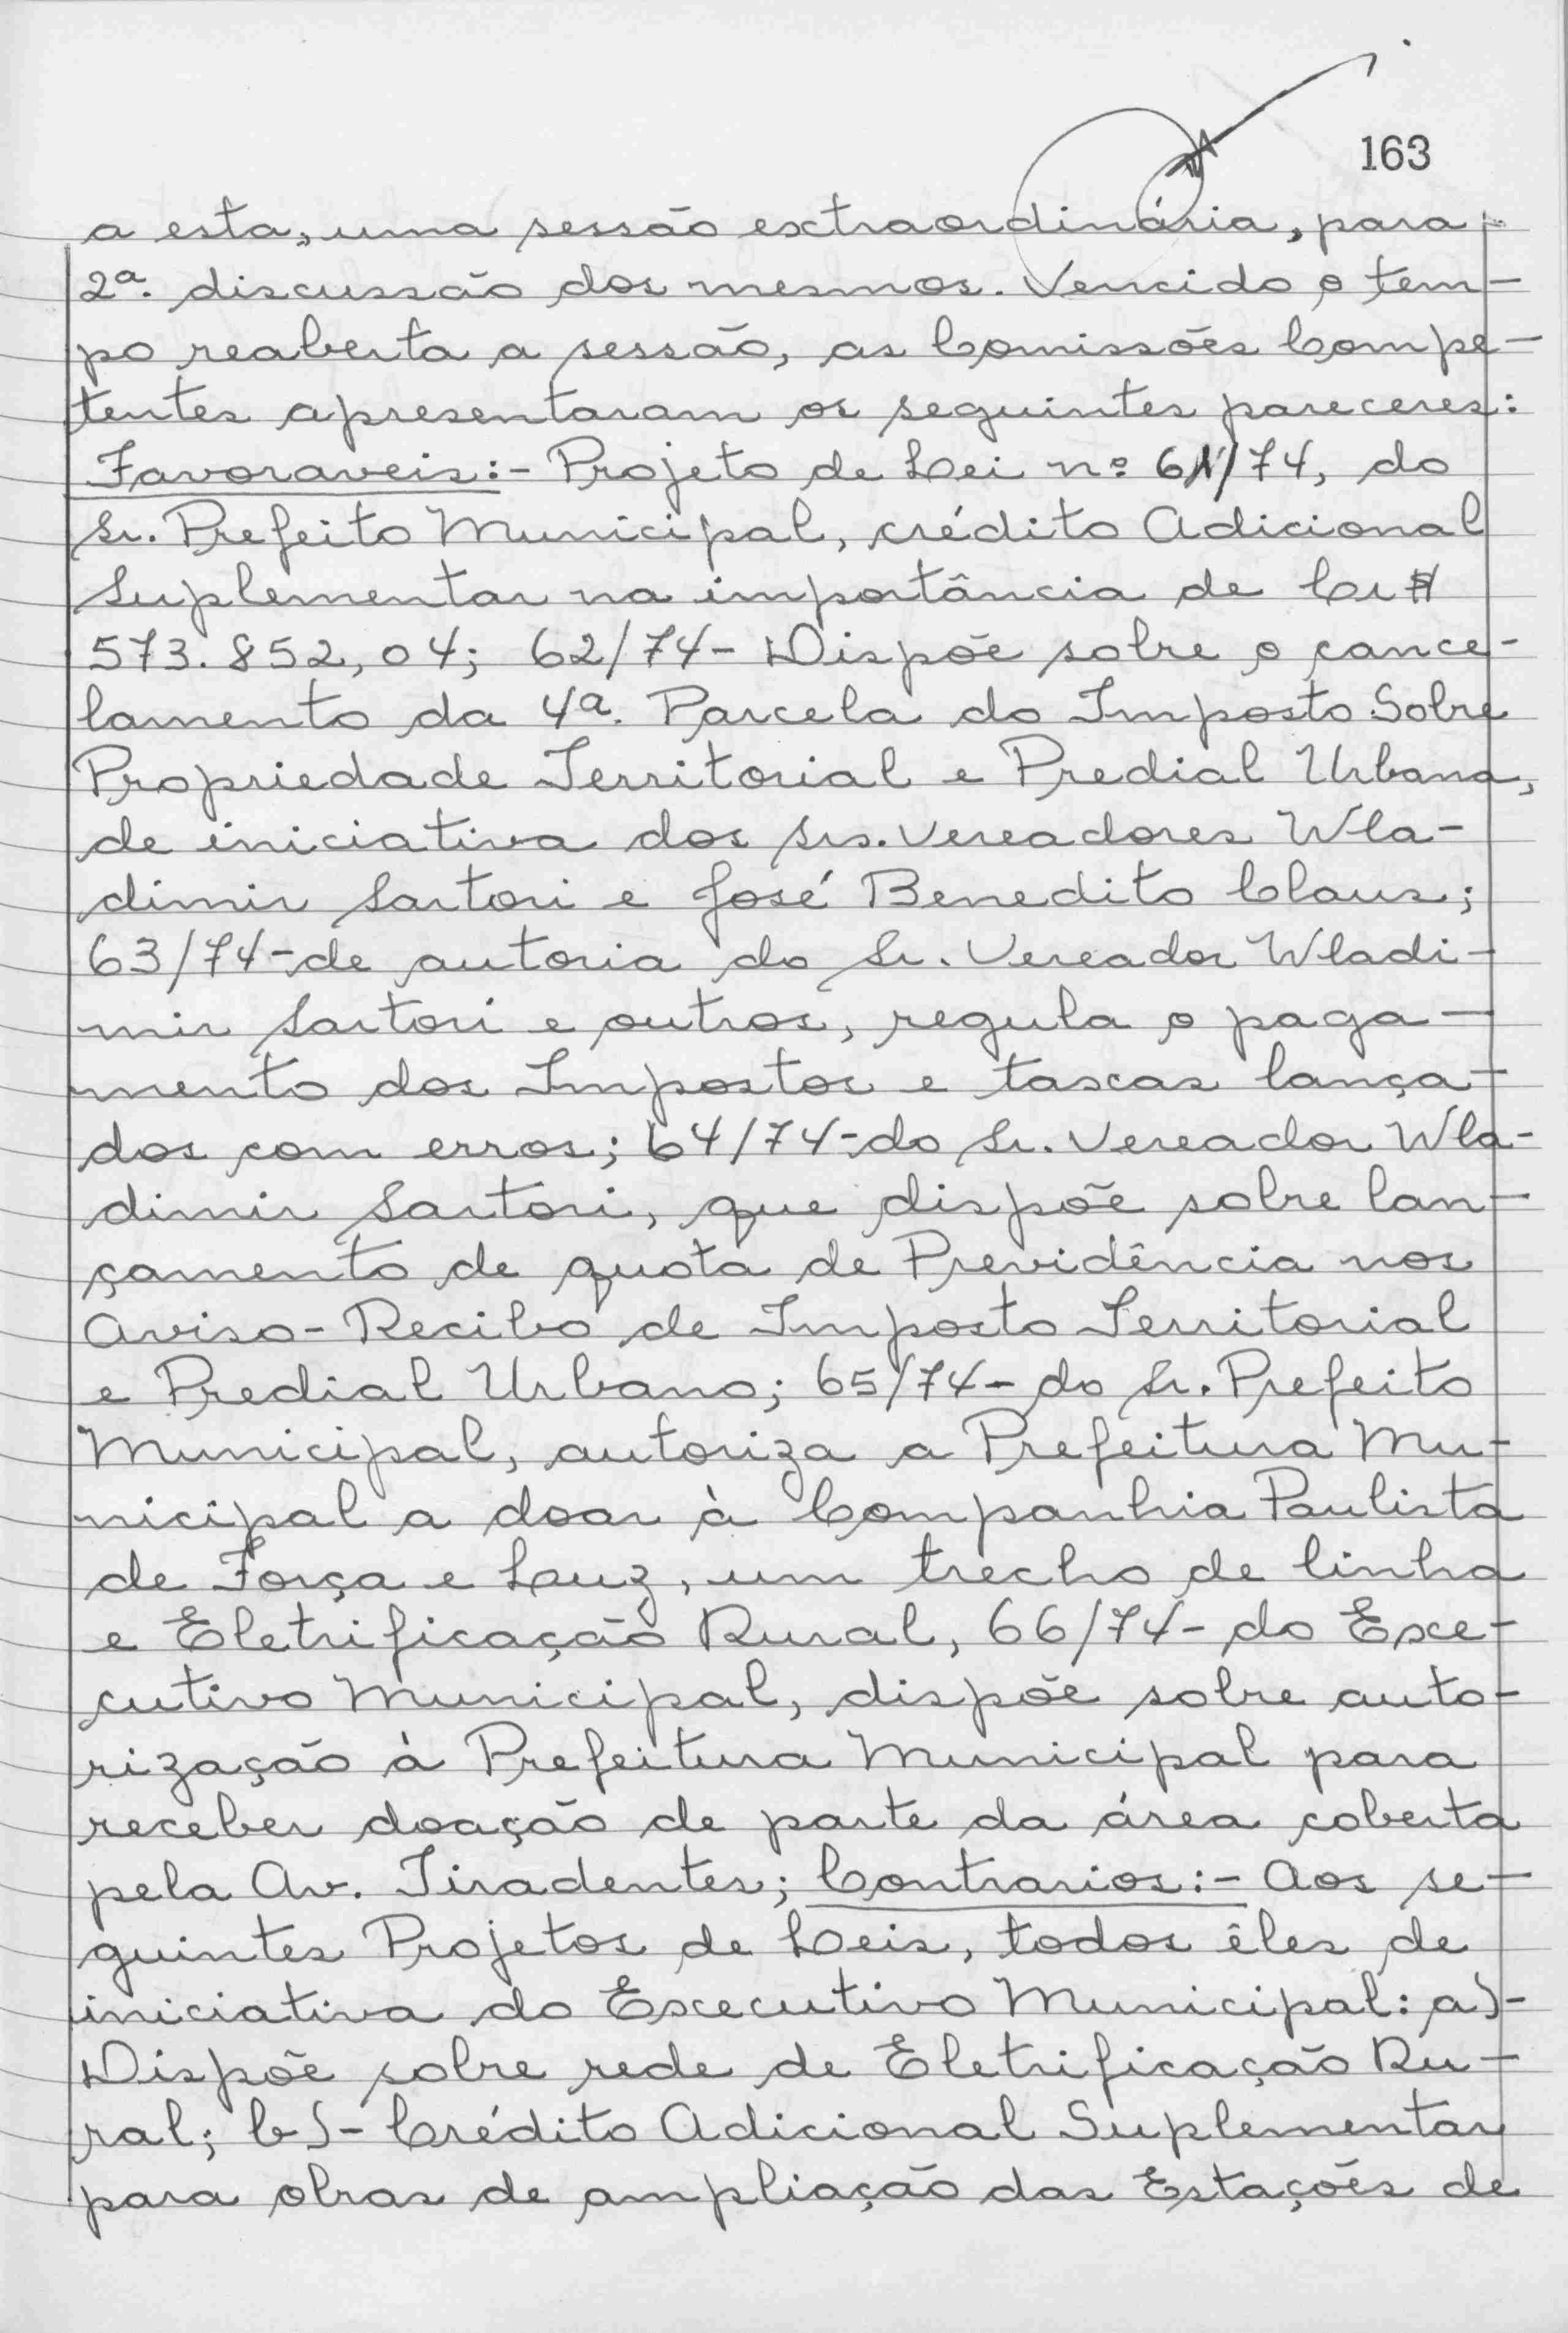 163
a esta, uma sessão extraordinária, para
2ª. discussão dos mesmos. Vencido o tem-
po reaberta a sessão, as Comissões Compe-
tentes apresentaram os seguintes pareceres:
Favoraveis:- Projeto de Lei nº 61/74, do
Sr. Prefeito Municipal, crédito Adicional
Suplementar na importância de Cr$
573.852,04; 62/74- Dispõe sobre o cance-
lamento da 4ª. Parcela do Imposto Sobre
Propriedade Territorial e Predial Urbana,
de iniciativa dos srs. Vereadores Wla-
dimir Sartori e José Benedito Claus;
63/74-de autoria do Sr. Vereador Wladi-
mir Sartori e outros, regula o paga-
mento dos Impostos e taxas lança-
dos com erros; 64/74-do Sr. Vereador Wla-
dimir Sartori, que dispõe sobre lan-
çamento de quota de Previdência nos
Aviso-Recibo de Imposto Territorial
e Predial Urbano; 65/74- do Sr. Prefeito
Municipal, autoriza a Prefeitura Mu-
nicipal a doar à Companhia Paulista
de Força e Luz, um trecho de linha
e Eletrificação Rural, 66/74- do Exe-
cutivo Municipal, dispõe sobre auto-
rização à Prefeitura Municipal para
receber doação de parte da área coberta
pela Av. Tiradentes; Contrarios:- Aos se-
guintes Projetos de Leis, todos êles de
iniciativa do Executivo Municipal: a)-
Dispõe sobre rede de Eletrificação Ru-
ral; b)- Crédito Adicional Suplementar
para obras de ampliação das Estações de